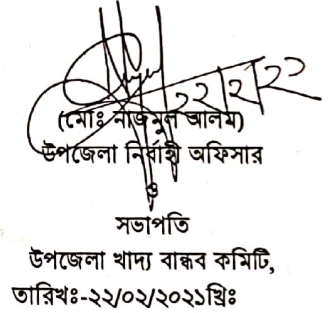 ২২।২।২২
(মোঃ নাজমুল আলম)
উপজেলা নির্বাহী অফিসার
ও
সভাপতি
উপজেলা খাদ্য বান্ধব কমিটি,
তারিখঃ-২২/০২/২০২১খ্রিঃ